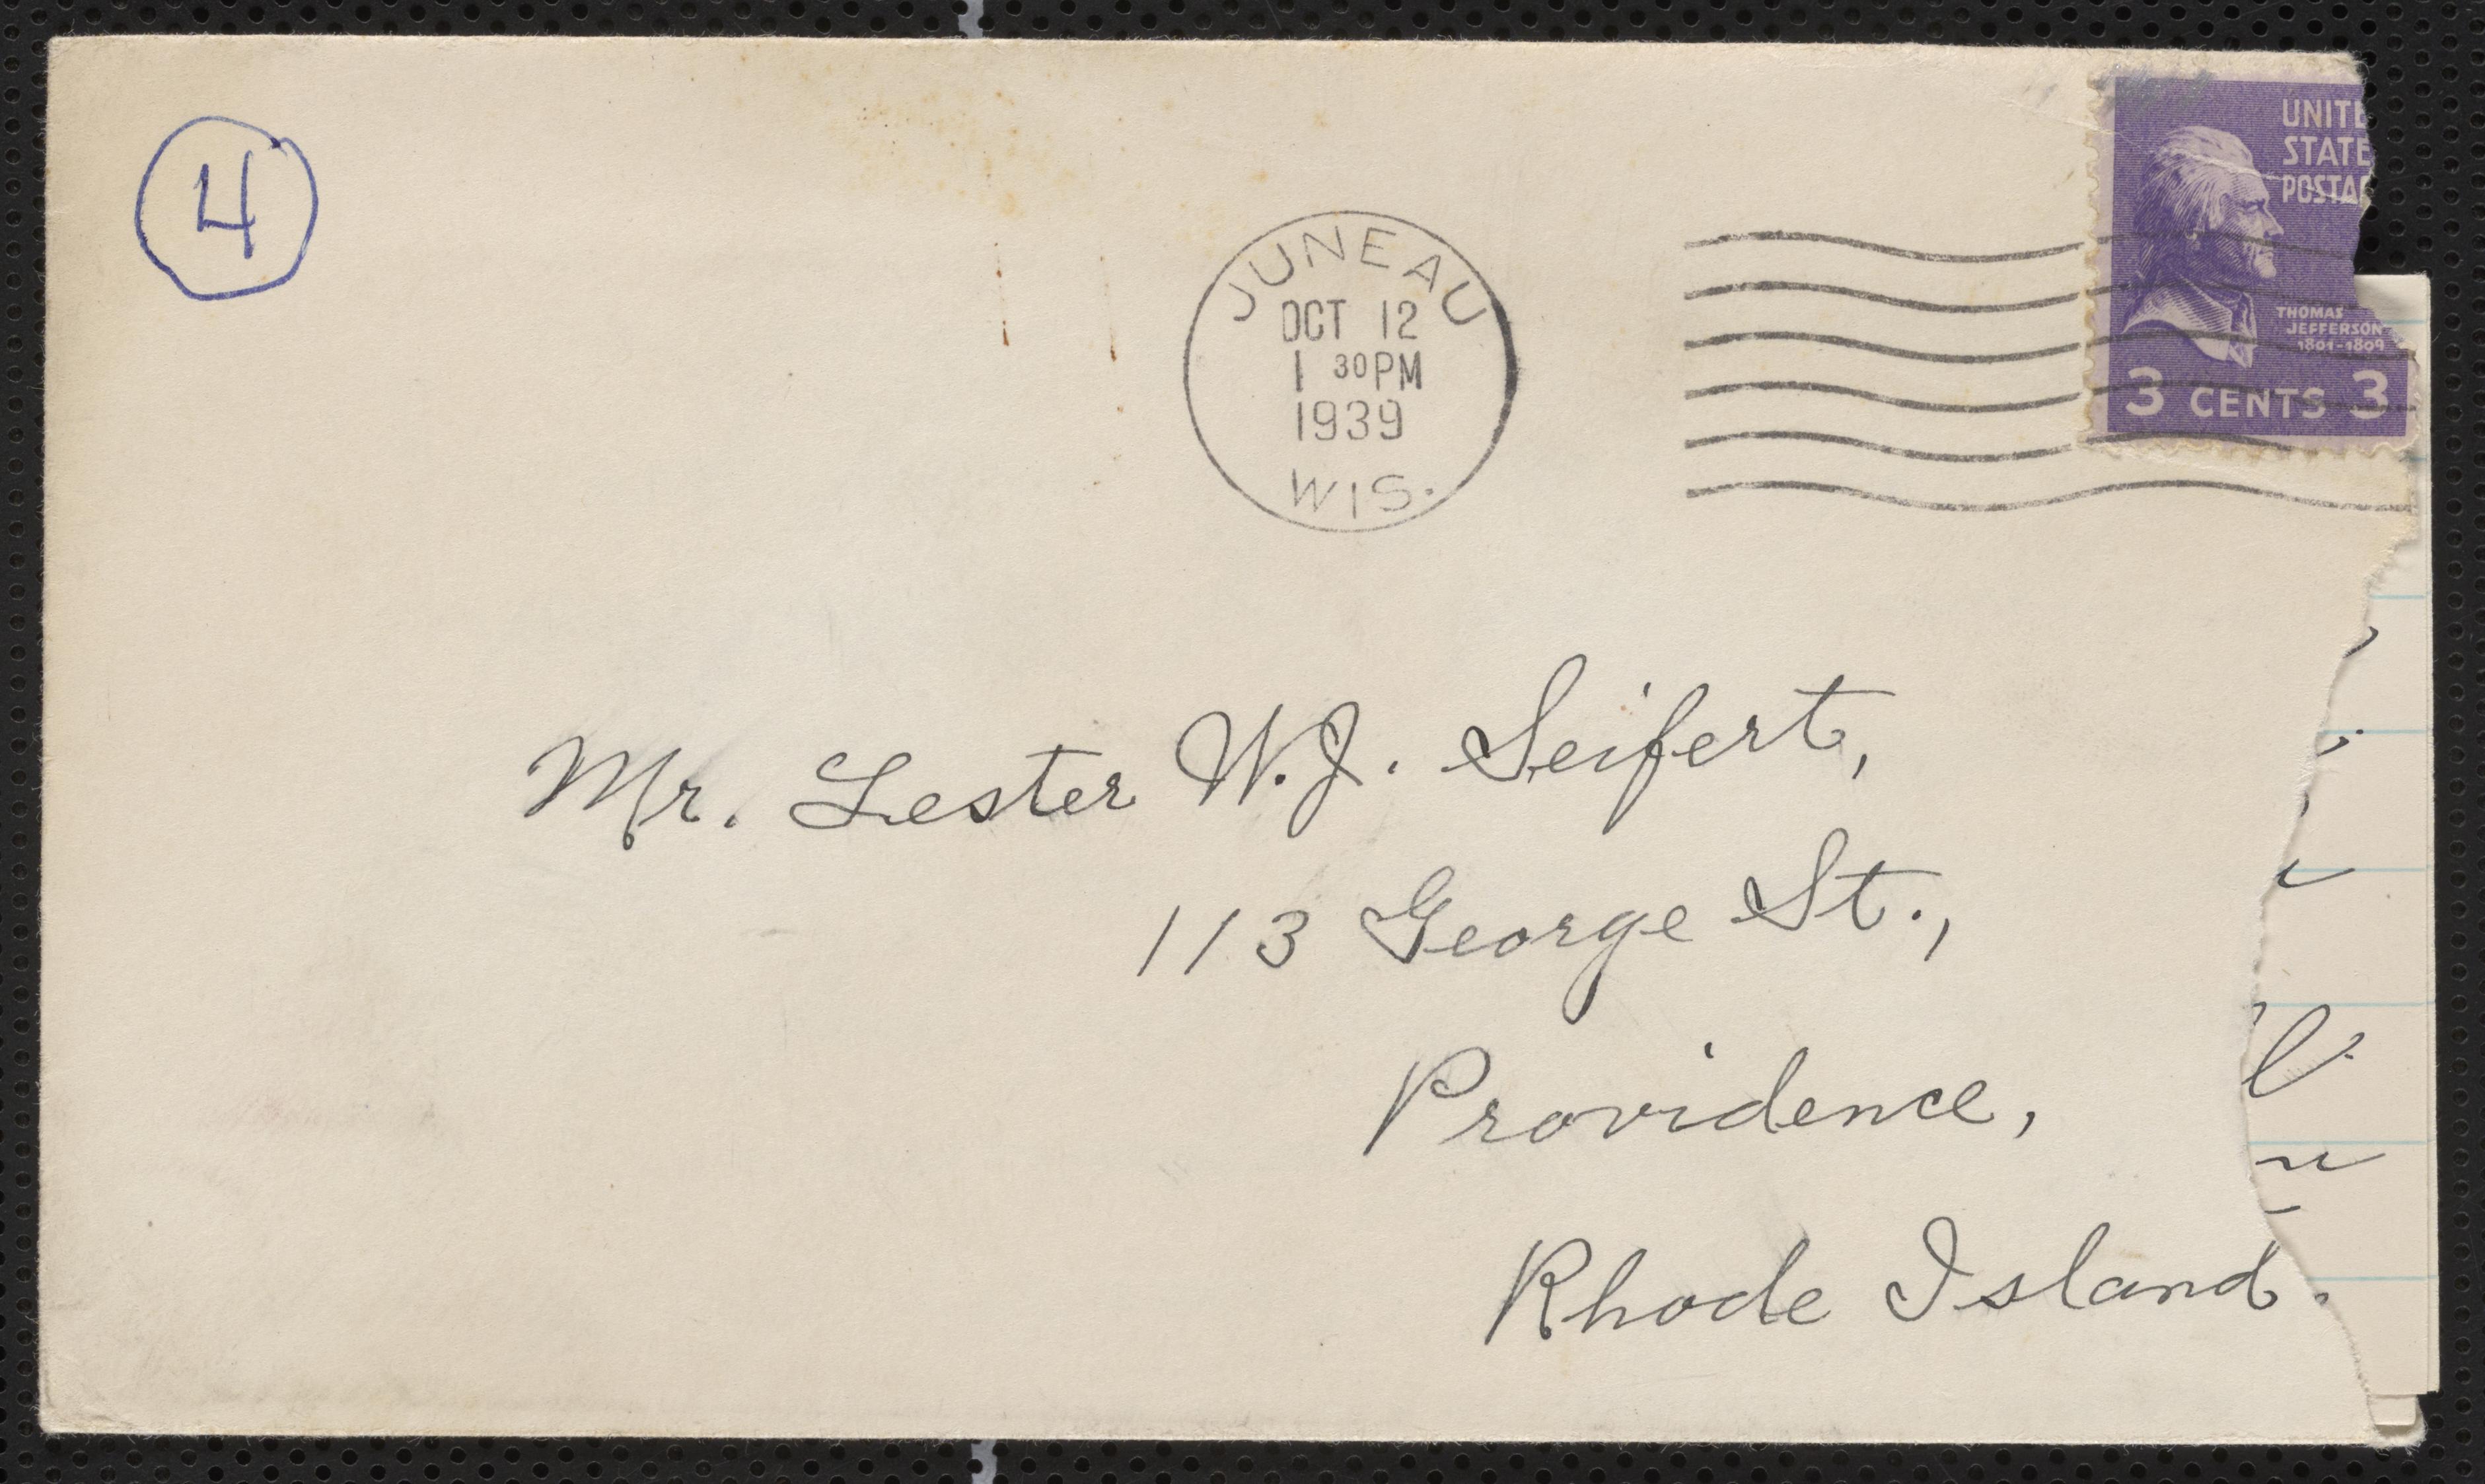 4
JUNEAU
OCT 12
1 30PM
1939
WIS.
UNITE
STATE
POSTA
THOMAS
JEFFERSON
1801-1809
3 CENTS 3
Mr. Lester W.J. Seifert,
113 George St.,
Providence,
Rhode Island.